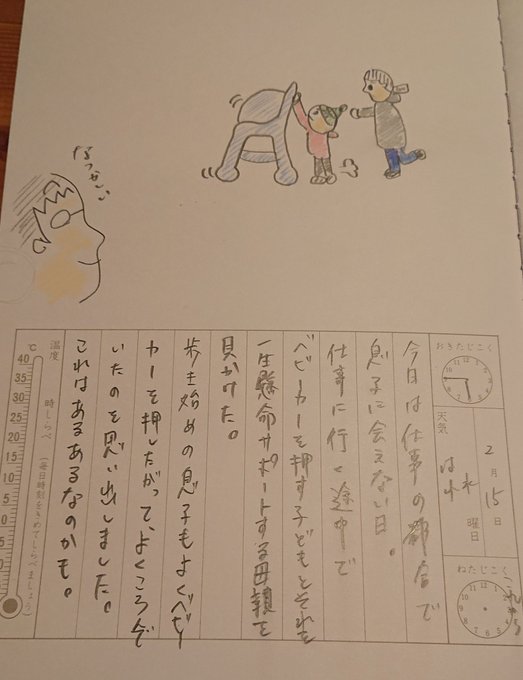 なつかしい
おきたじこく
2月15日
水曜日
天気 はれ
ねたじこく
これから
今日は仕事の都合で
息子に会えない日。
仕事に行く途中で
ベビーカーを押す子どもとそれを
一生懸命サポートする母親を
見かけた。
歩き始めの息子もよくベビー
カーを押したがって、よくころんで
いたのを思い出しました。
これはあるあるなのかも。
温度 時しらべ （毎日時刻をきめてしらべましょう）
℃
40
35
30
25
20
15
10
5
0
5